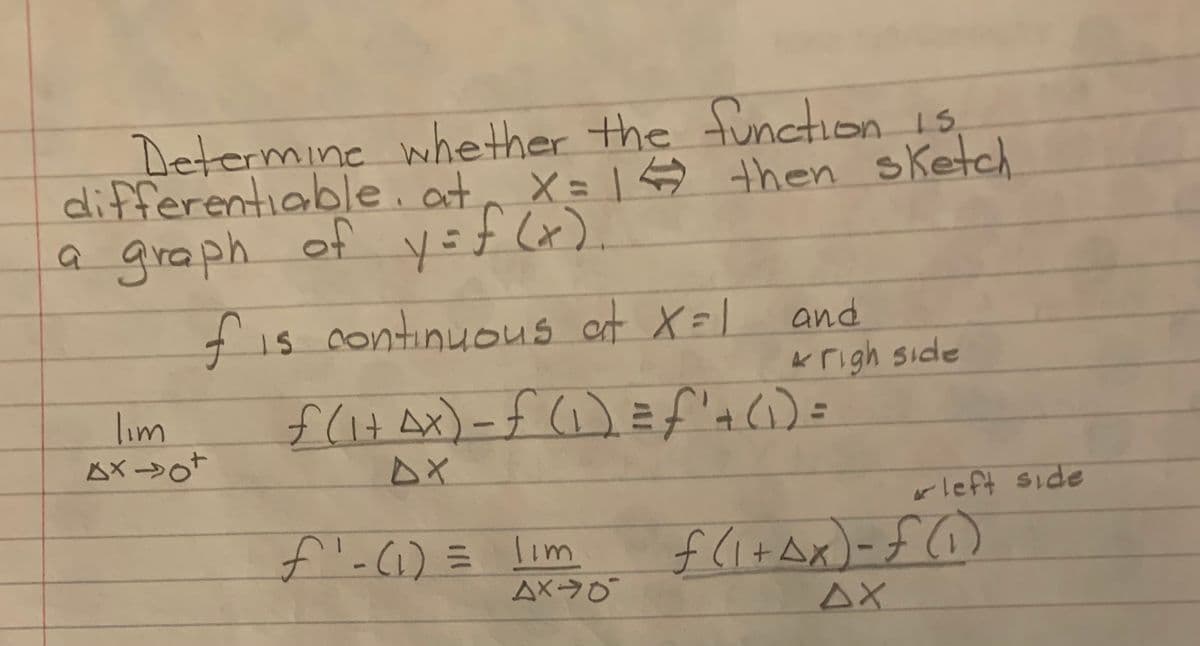 Determine whether the function is
differentiable. at x = 1 ⇔ then sketch
a graph of y = f(x).
f is continuous at x = 1 and
↙ righ side
lim f(1 + Δx) - f(1) ≡ f'+(1) =
Δx → 0⁺ Δx
↙ left side
f'-(1) ≡ lim f(1 + Δx) - f(1)
Δx → 0⁻ Δx